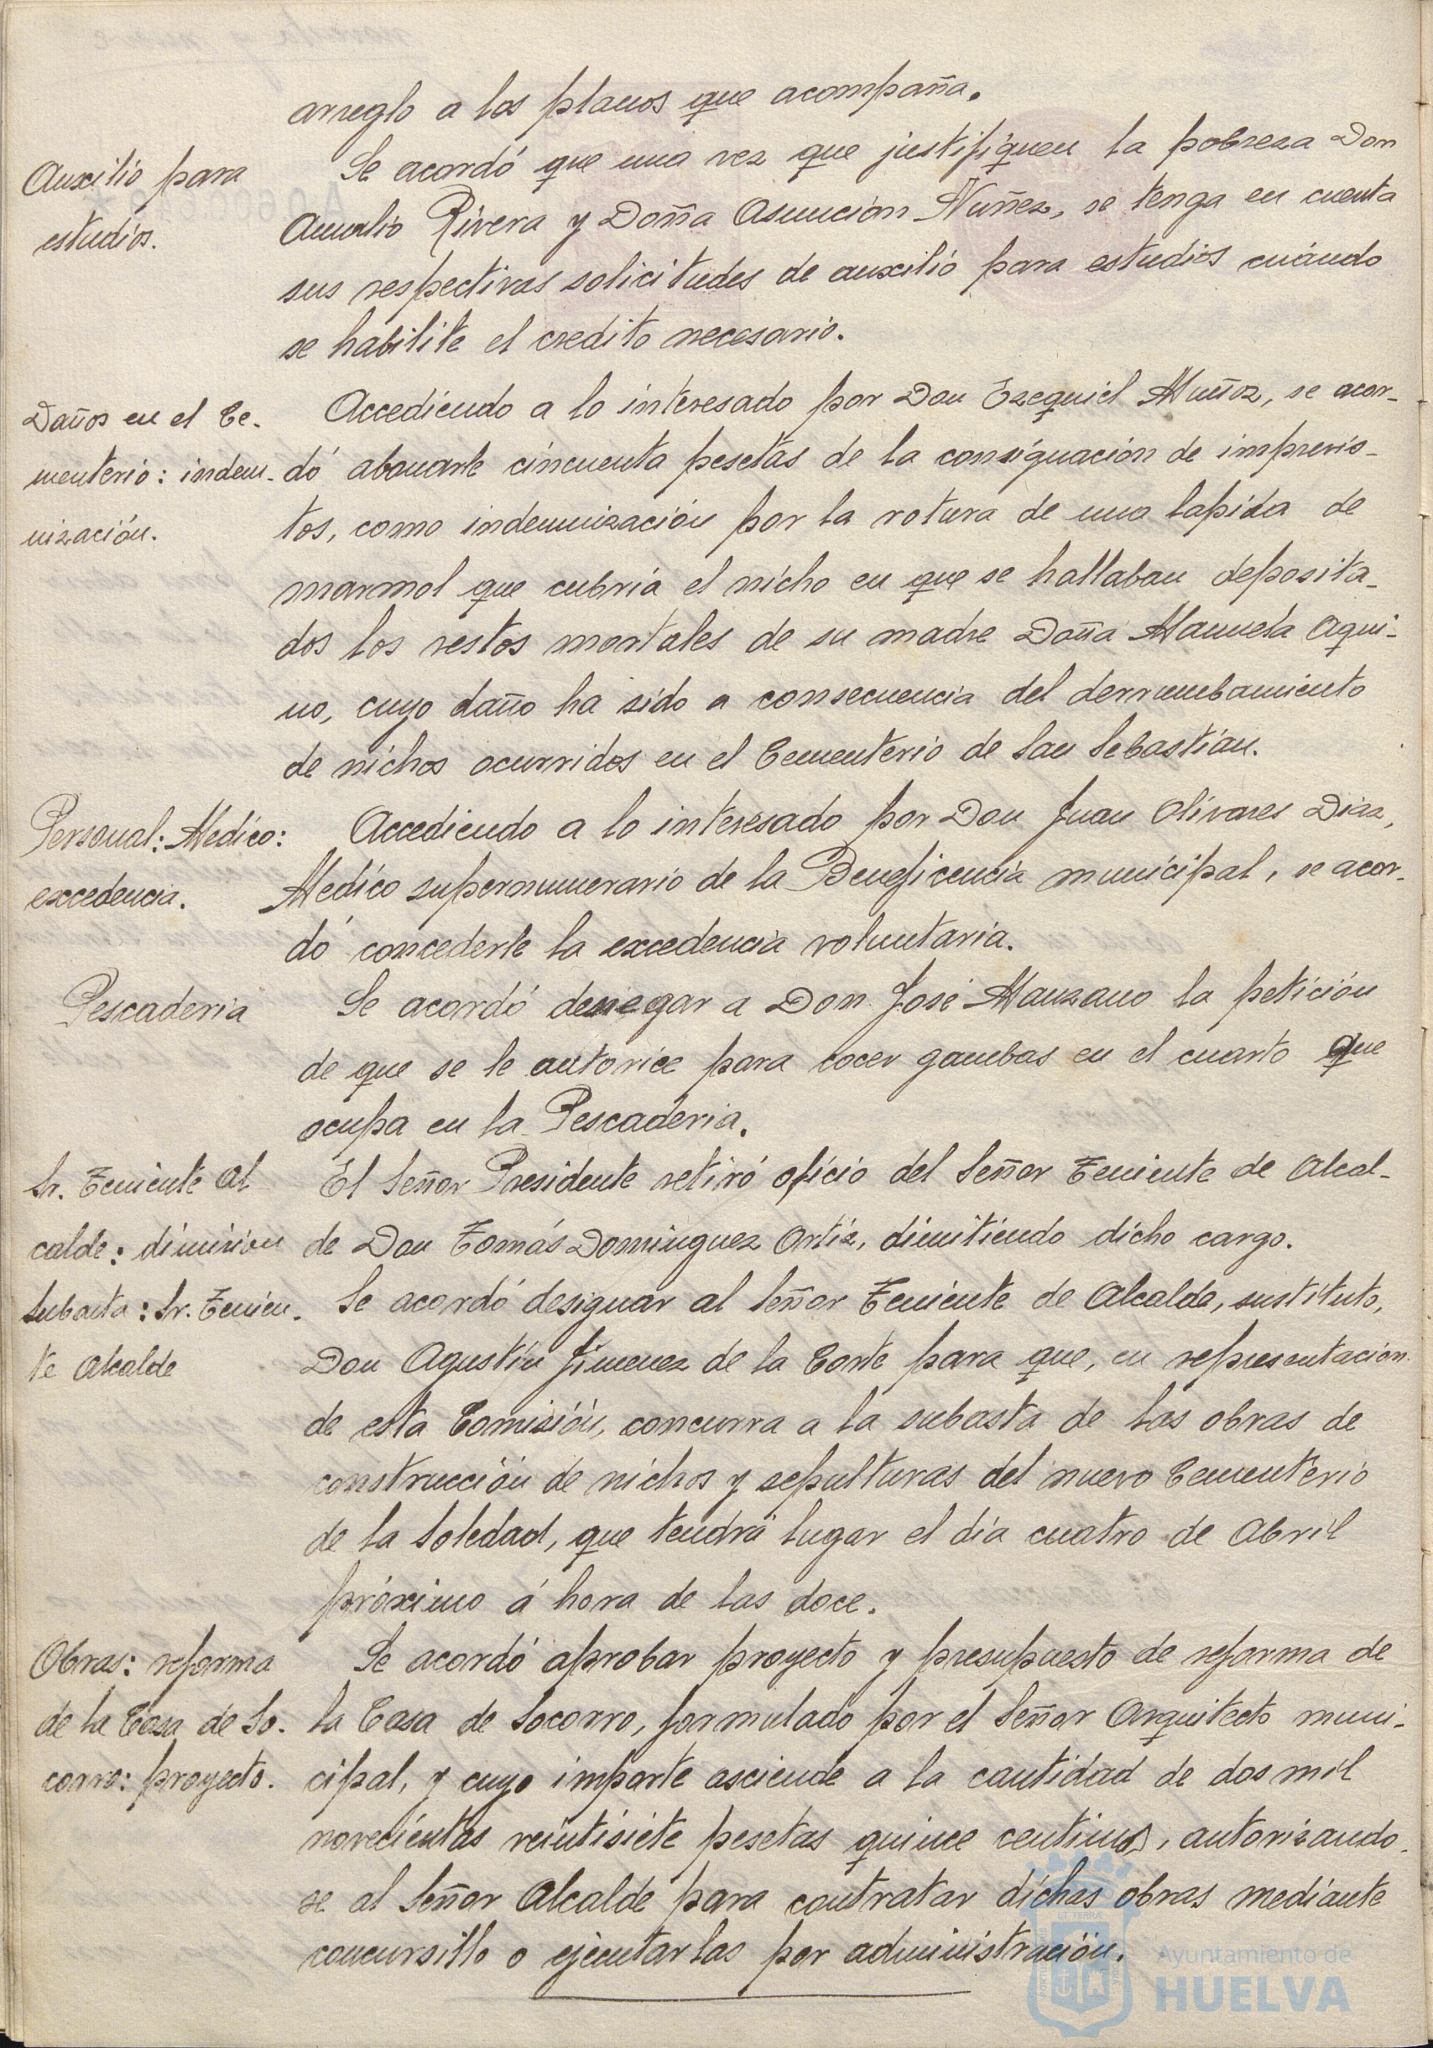 arreglo a los planos que acompaña.
Auxilio para
estudios.
Se acordó que una vez que justifiquen la pobreza Don
Aurelio Rivera y Doña Asunción Nuñez, se tenga en cuenta
sus respectivas solicitudes de auxilio para estudios cuándo
se habilite el credito necesario.
Daños en el Ce-
menterio: indem-
nización.
Accediendo a lo interesado por Don Ezequiel Muñoz, se acor-
dó abonarle cincuenta pesetas de la consignación de imprevis-
tos, como indemnización por la rotura de una lapida de
marmol que cubria el nicho en que se hallaban deposita-
dos los restos mortales de su madre Doña Manuela Aqui-
no, cuyo daño ha sido a consecuencia del derrumbamiento
de nichos ocurridos en el Cementerio de San Sebastián.
Personal: Medico:
excedencia.
Accediendo a lo interesado por Don Juan Olivares Diaz,
Medico supernumerario de la Beneficencia municipal, se acor-
dó concederle la excedencia voluntaria.
Pescaderia
Se acordó denegar a Don José Manzano la petición
de que se le autorice para cocer gambas en el cuarto que
ocupa en la Pescaderia.
Sr. Teniente Al
calde: dimision
El Señor Presidente retiró oficio del Señor Teniente de Alcal-
de Don Tomás Dominguez Ortiz, dimitiendo dicho cargo.
Subasta: Sr. Tenien-
te Alcalde
Se acordó designar al Señor Teniente de Alcalde, sustituto,
Don Agustín Jimenez de la Corte para que, en representación
de esta Comisión, concurra a la subasta de las obras de
construcción de nichos y sepulturas del nuevo Cementerio
de la Soledad, que tendrá lugar el día cuatro de Abril
próximo á hora de las doce.
Obras: reforma
de la Casa de So-
corro: proyecto.
Se acordó aprobar proyecto y presupuesto de reforma de
la Casa de Socorro, formulado por el Señor Arquitecto muni-
cipal, y cuyo importe asciende a la cantidad de dos mil
novecientas veintisiete pesetas quince centimos, autorizando-
se al Señor Alcalde para contratar dichas obras mediante
concursillo o ejecutarlas por administración.
Ayuntamiento de
HUELVA